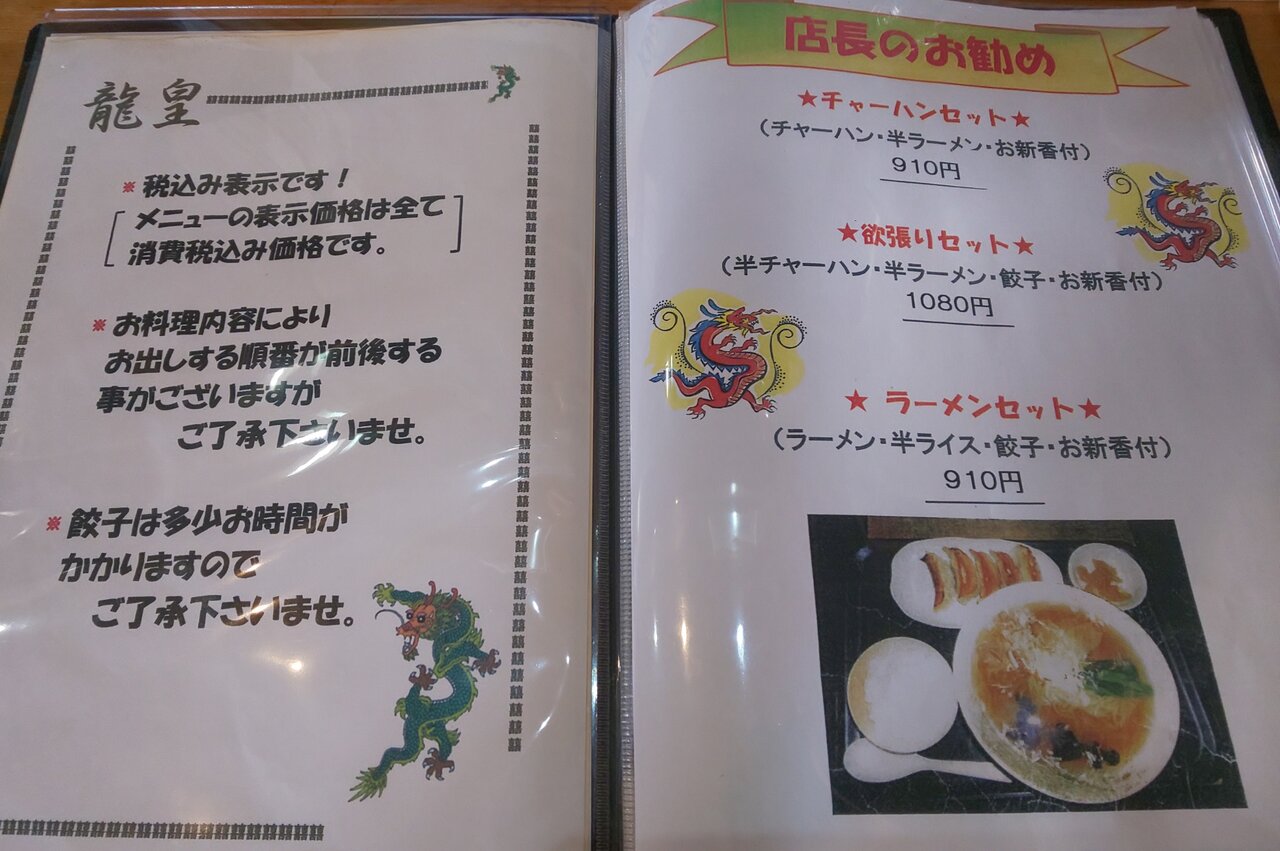 龍皇
※ 税込み表示です！
メニューの表示価格は全て
消費税込み価格です。
※ お料理内容により
お出しする順番が前後する
事がございますが
ご了承下さいませ。
※ 餃子は多少お時間が
かかりますので
ご了承下さいませ。
店長のお勧め
★チャーハンセット★
（チャーハン・半ラーメン・お新香付）
910円
★欲張りセット★
（半チャーハン・半ラーメン・餃子・お新香付）
1080円
★ ラーメンセット★
（ラーメン・半ライス・餃子・お新香付）
910円